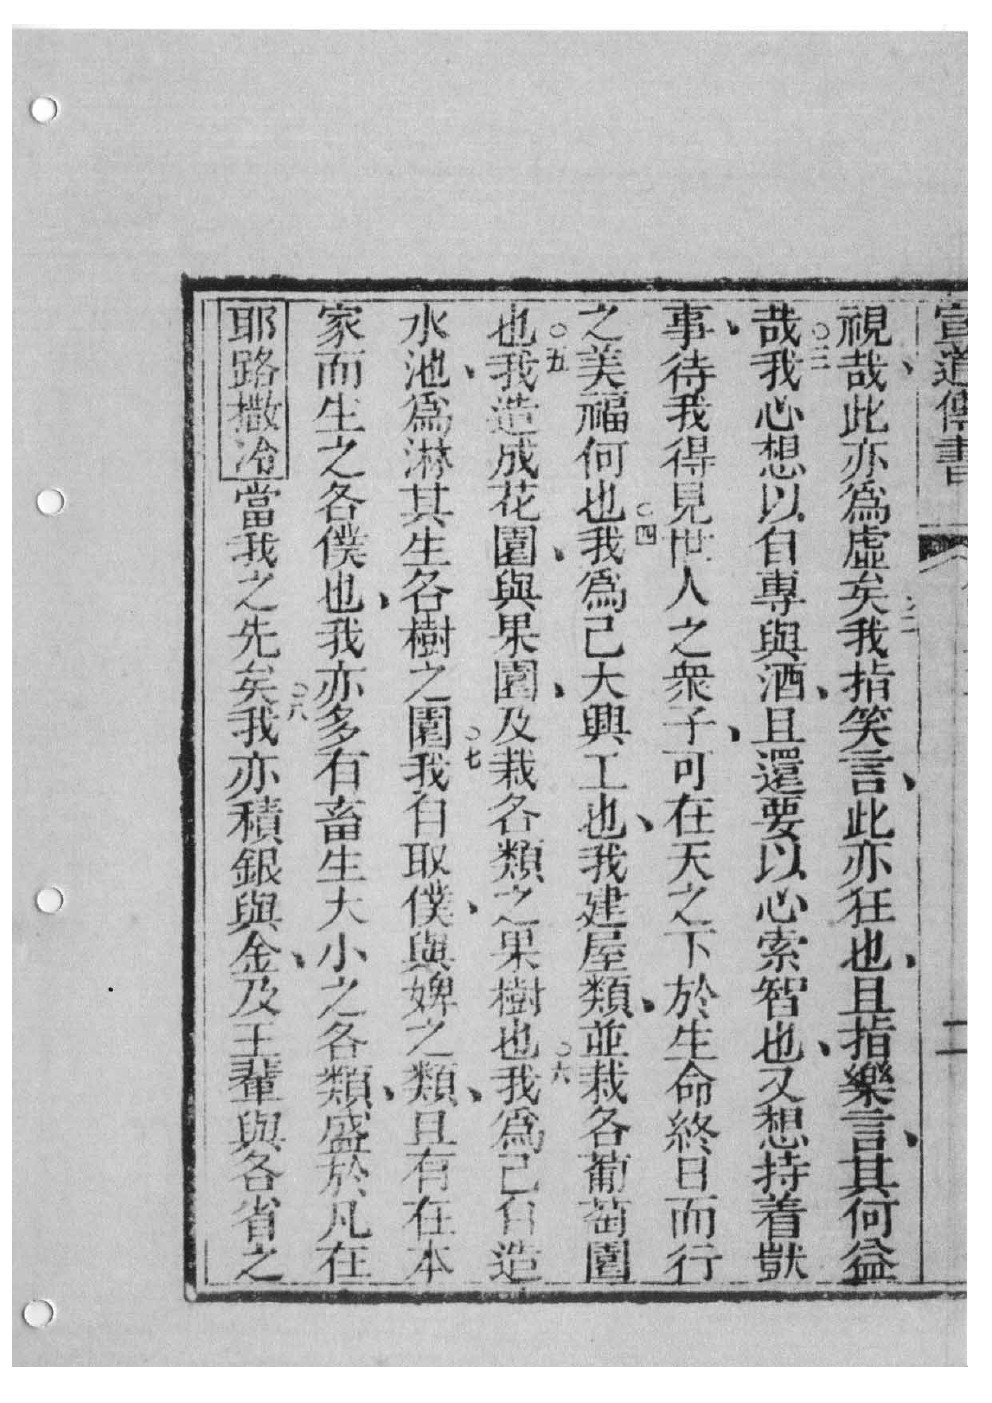 宣道傳書
二
視哉、此亦為虛矣○二我指笑言、此亦狂也、且指樂言、其何益
哉○三我心想以自專與酒、且還要以心索智也、又想持着獃
事、待我得見世人之衆子、可在天之下於生命終日而行
之美福何也○四我為己大興工也、我建屋類、並栽各葡萄園
也○五我造成花園、與果園、及栽各類之果樹也○六我為己自造
水池、為淋其生各樹之園○七我自取僕、與婢之類、且有在本
家而生之各僕也、我亦多有畜生大小之各類、盛於凡在
耶路撒冷當我之先矣○八我亦積銀與金、及王輩與各省之